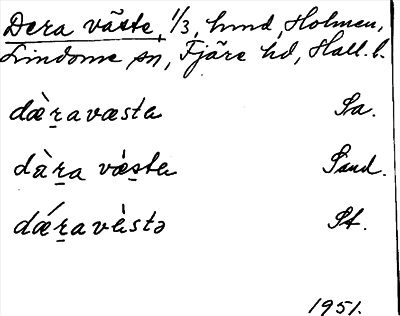 Dera väste, 1/3, hmd, Holmen,
Lindome sn, Fjäre hd, Hall. l.
dæ̀r̲avæsta Sa.
dàr̲a væ̀s̲ta Sand.
dǽr̲avè̀stə St.
1951.